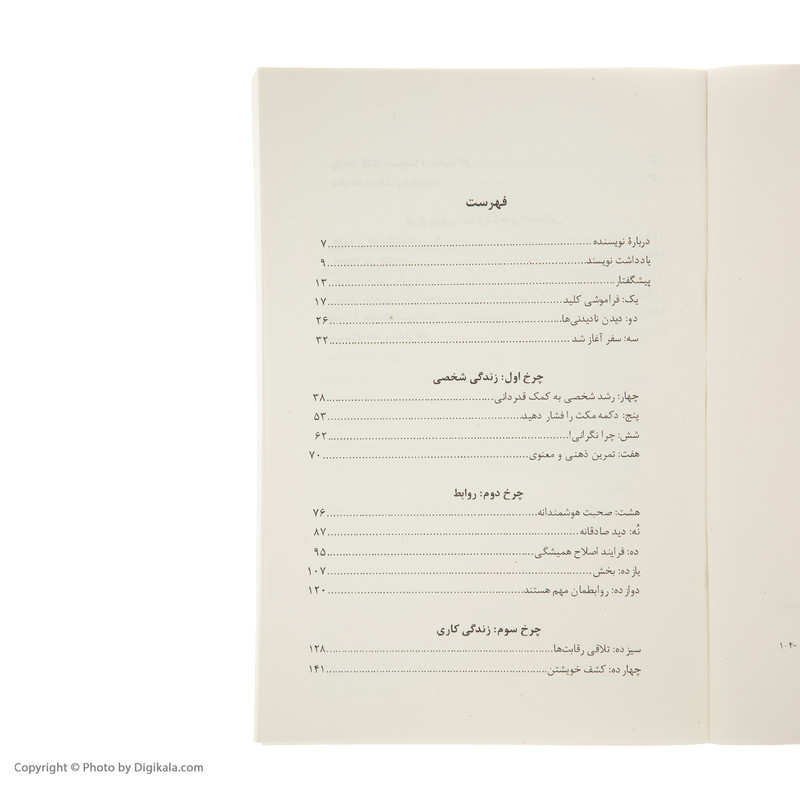 فهرست
دربارهٔ نویسنده ........ ۷
یادداشت نویسند ........ ۹
پیشگفتار ........ ۱۳
یک: فراموشی کلید ........ ۱۷
دو: دیدن نادیدنی‌ها ........ ۲۶
سه: سفر آغاز شد ........ ۳۲
چرخ اول: زندگی شخصی
چهار: رشد شخصی به کمک قدردانی ........ ۳۸
پنج: دکمه مکث را فشار دهید ........ ۵۳
شش: چرا نگرانی! ........ ۶۲
هفت: تمرین ذهنی و معنوی ........ ۷۰
چرخ دوم: روابط
هشت: صحبت هوشمندانه ........ ۷۶
نُه: دید صادقانه ........ ۸۷
ده: فرایند اصلاح همیشگی ........ ۹۵
یازده: بخش ........ ۱۰۷
دوازده: روابطمان مهم هستند ........ ۱۲۰
چرخ سوم: زندگی کاری
سیزده: تلاقی رقابت‌ها ........ ۱۲۸
چهارده: کشف خویشتن ........ ۱۴۱
۱۰۴-
Copyright © Photo by Digikala.com